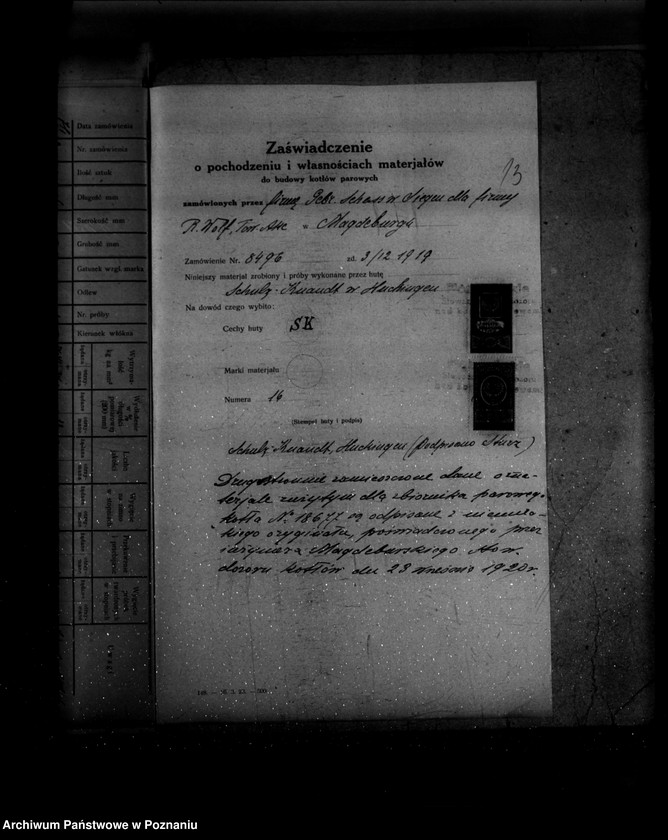 Data zamówienia
Nr. zamówienia
Ilość sztuk
Długość mm
Szerokość mm
Grubość mm
Gatunek wzgl. marka
Odlew
Nr. próby
Kierunek włókna
Uwagi
13
Zaświadczenie
o pochodzeniu i własnościach materjałów
do budowy kotłów parowych
zamówionych przez firmę Gebr. Schoss w Siegen dla firmy
R. Wolf, Tow. Akc w Magdeburgu
Zamówienie Nr. 8496 zd. 3/12 1919
Niniejszy materjał zrobiony i próby wykonane przez hutę
Schulz-Knaudt w Huckingen
Na dowód czego wybito:
Cechy huty SK
Marki materjału
Numera 16
(Stempel huty i podpis)
Schulz Knaudt, Huckingen (Podpisano Sturz)
Drugostronnie zamieszczone dane o ma-
terjale zużytym dla zbiornika parowego
kotła Nr. 18677 są odpisane z niemiec-
kiego oryginału, poświadczonego przez
inżyniera Magdeburskiego Stow.
dozoru kotłów du 23 1920 r.
Archiwum Państwowe w Poznaniu